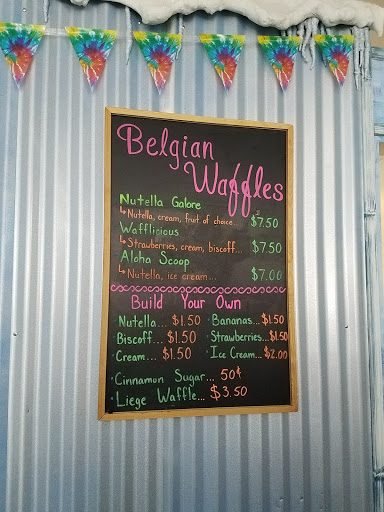 Belgian
Waffles
Nutella Galore
↳Nutella, cream, fruit of choice... $7.50
Wafflicious
↳Strawberries, cream, biscoff... $7.50
Aloha Scoop
↳Nutella, ice cream... $7.00
Build Your Own
Nutella... $1.50 •Bananas...$1.50
Biscoff... $1.50 •Strawberries...$1.50
•Cream... $1.50 •Ice Cream...$2.00
•Cinnamon Sugar... 50¢
•Liege Waffle... $3.50